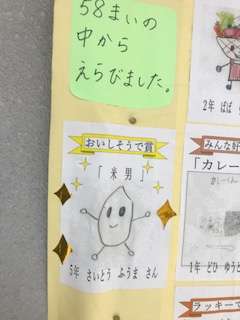 58まいの
中から
えらびました。
おいしそうで賞
「米男」
5年 さいとう ふうま さん
2年 ばば
みんな好
「カレー
1年 どひ ゆうと
ラッキーで